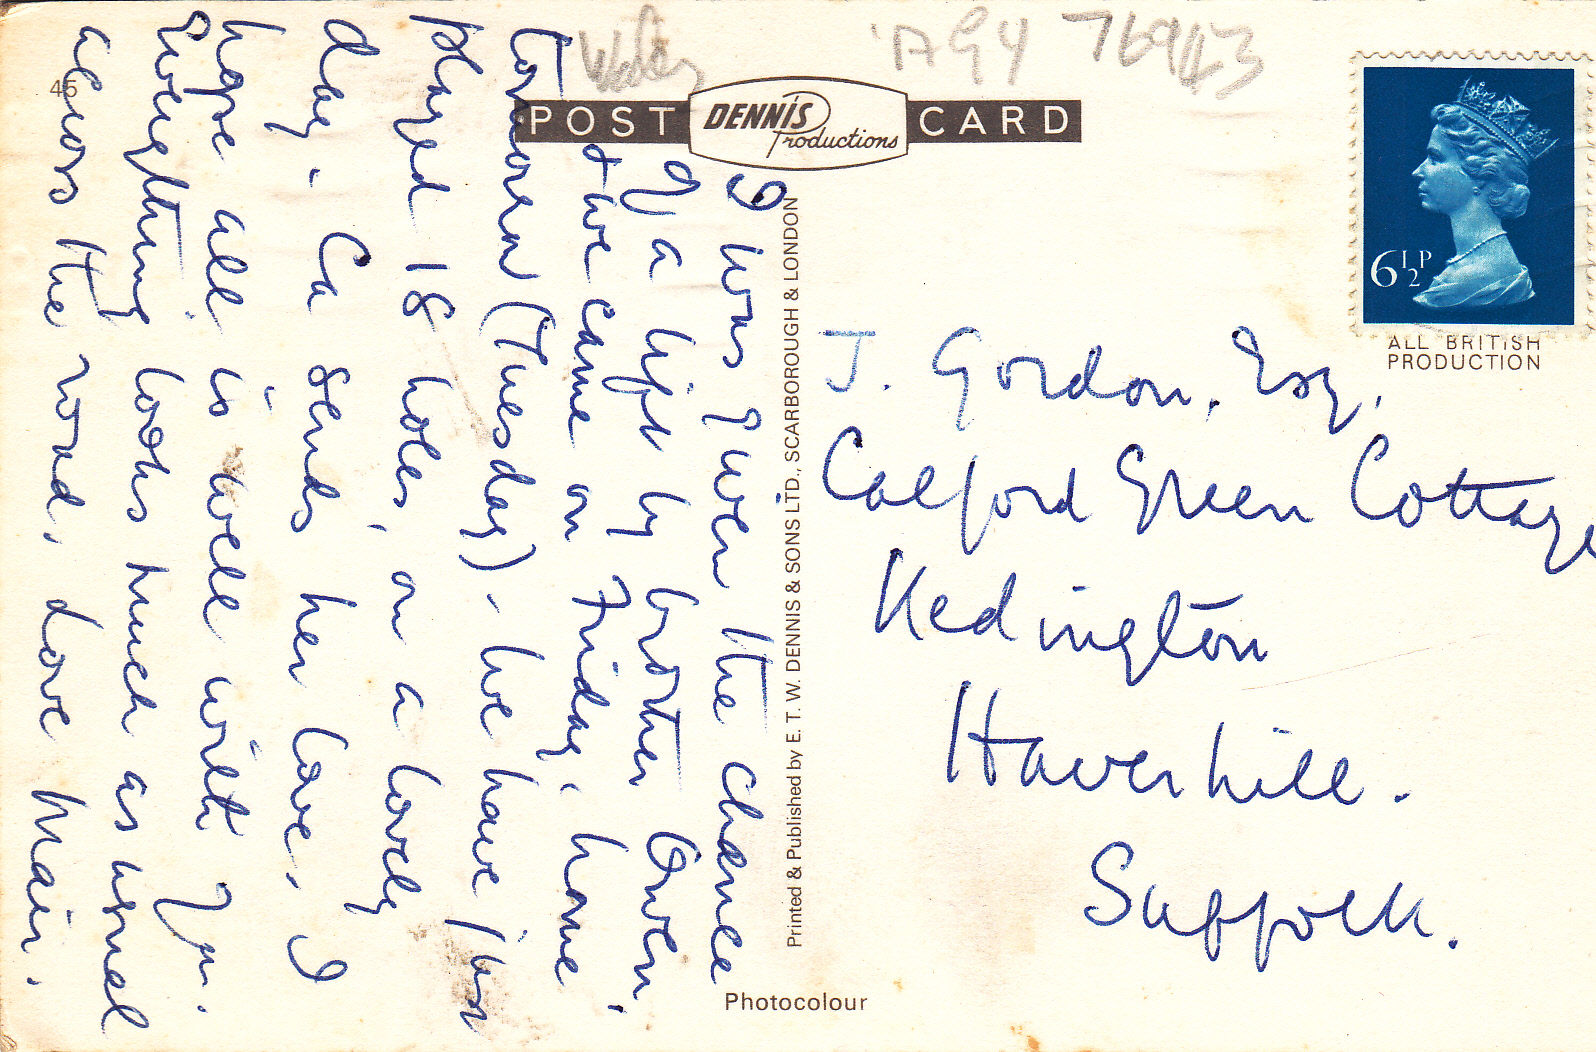 45
Wales
'A94 76943
POST DENNIS Productions CARD
I was given the chance
of a lift by brother Owen.
& we came on Friday, home
tomorrow (Tuesday). We have just
played 18 holes, on a lovely
day. Ca sends her love, I
hope all is well with you.
Everything looks much as usual
across the road, love Mair.
Printed & Published by E. T. W. DENNIS & SONS LTD., SCARBOROUGH & LONDON
Photocolour
6½P
ALL BRITISH
PRODUCTION
J. Gordon, Esq,
Calford Green Cottage
Kedington
Haverhill.
Suffolk.